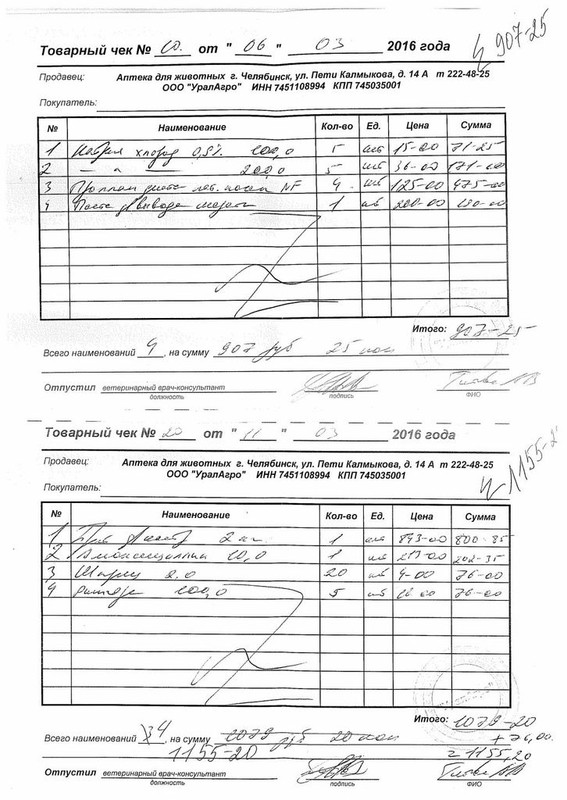 Товарный чек № 10. от "06" 03 2016 года
907-25
Продавец: Аптека для животных г. Челябинск, ул. Пети Калмыкова, д. 14 А т 222-48-25
ООО "УралАгро" ИНН 7451108994 КПП 745035001
Покупатель:
№ Наименование Кол-во Ед. Цена Сумма
1 Натрия хлорид 0,9% 100,0 5 шт 15-00 71-25
2 — " — 200,0 5 шт 36-00 171-00
3 NF 4 шт 125-00 475-00
4 Паста для вывода шерсти 1 шт 200-00 190-00
Итого: 907-25
Всего наименований 4, на сумму 907 руб 25 коп
Отпустил ветеринарный врач-консультант
должность подпись ФИО
Товарный чек № 20 от "11" 03 2016 года
1155-2
Продавец: Аптека для животных г. Челябинск, ул. Пети Калмыкова, д. 14 А т 222-48-25
ООО "УралАгро" ИНН 7451108994 КПП 745035001
Покупатель:
№ Наименование Кол-во Ед. Цена Сумма
1 2 кг 1 шт 843-00 800-85
2 Амоксициллин 10,0 1 шт 213-00 202-35
3 Шприц 2.0 20 шт 4-00 76-00
4 100,0 5 шт 16-00 76-00
Итого: 1079-20
+ 76,00
Всего наименований 4, на сумму 1079 руб 20 коп
= 1155,20
1155-20
Отпустил ветеринарный врач-консультант
должность подпись ФИО